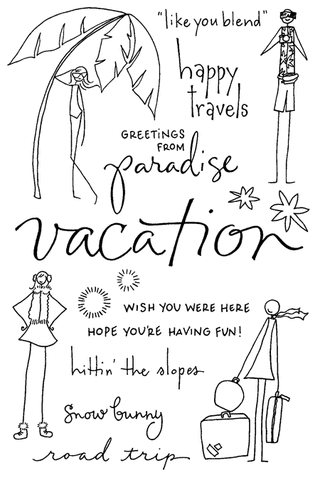 "like you blend"
happy
travels
GREETINGS
FROM
paradise
vacation
WISH YOU WERE HERE
HOPE YOU'RE HAVING FUN!
hittin' the slopes
snow bunny
road trip